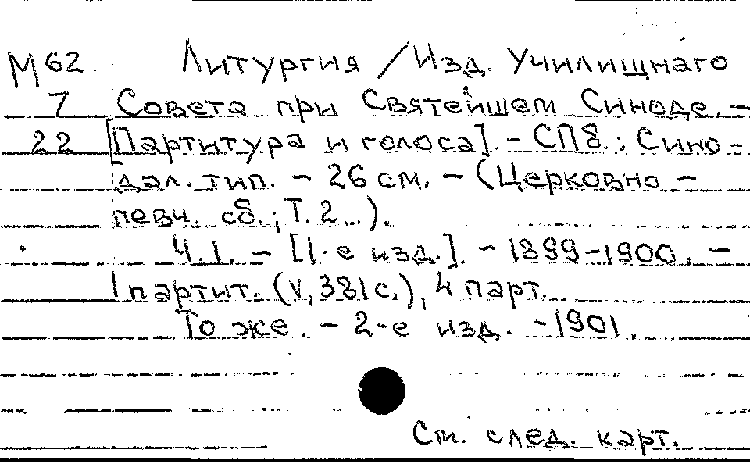 М 62 Литургия / Изд. Училищнаго
7 Совета при Святейшем Синоде. –
22 [Партитура и голоса]. – СПб.: Сино-
дал. тип. – 26 см. – (Церковно-
певч. сб.; Т. 2..).
Ч. I. – [1-е изд.]. – 1899–1900. –
1 партит. (V, 381 с.), 4 парт.
То же. – 2-е изд. – 1901.
См. след. карт.